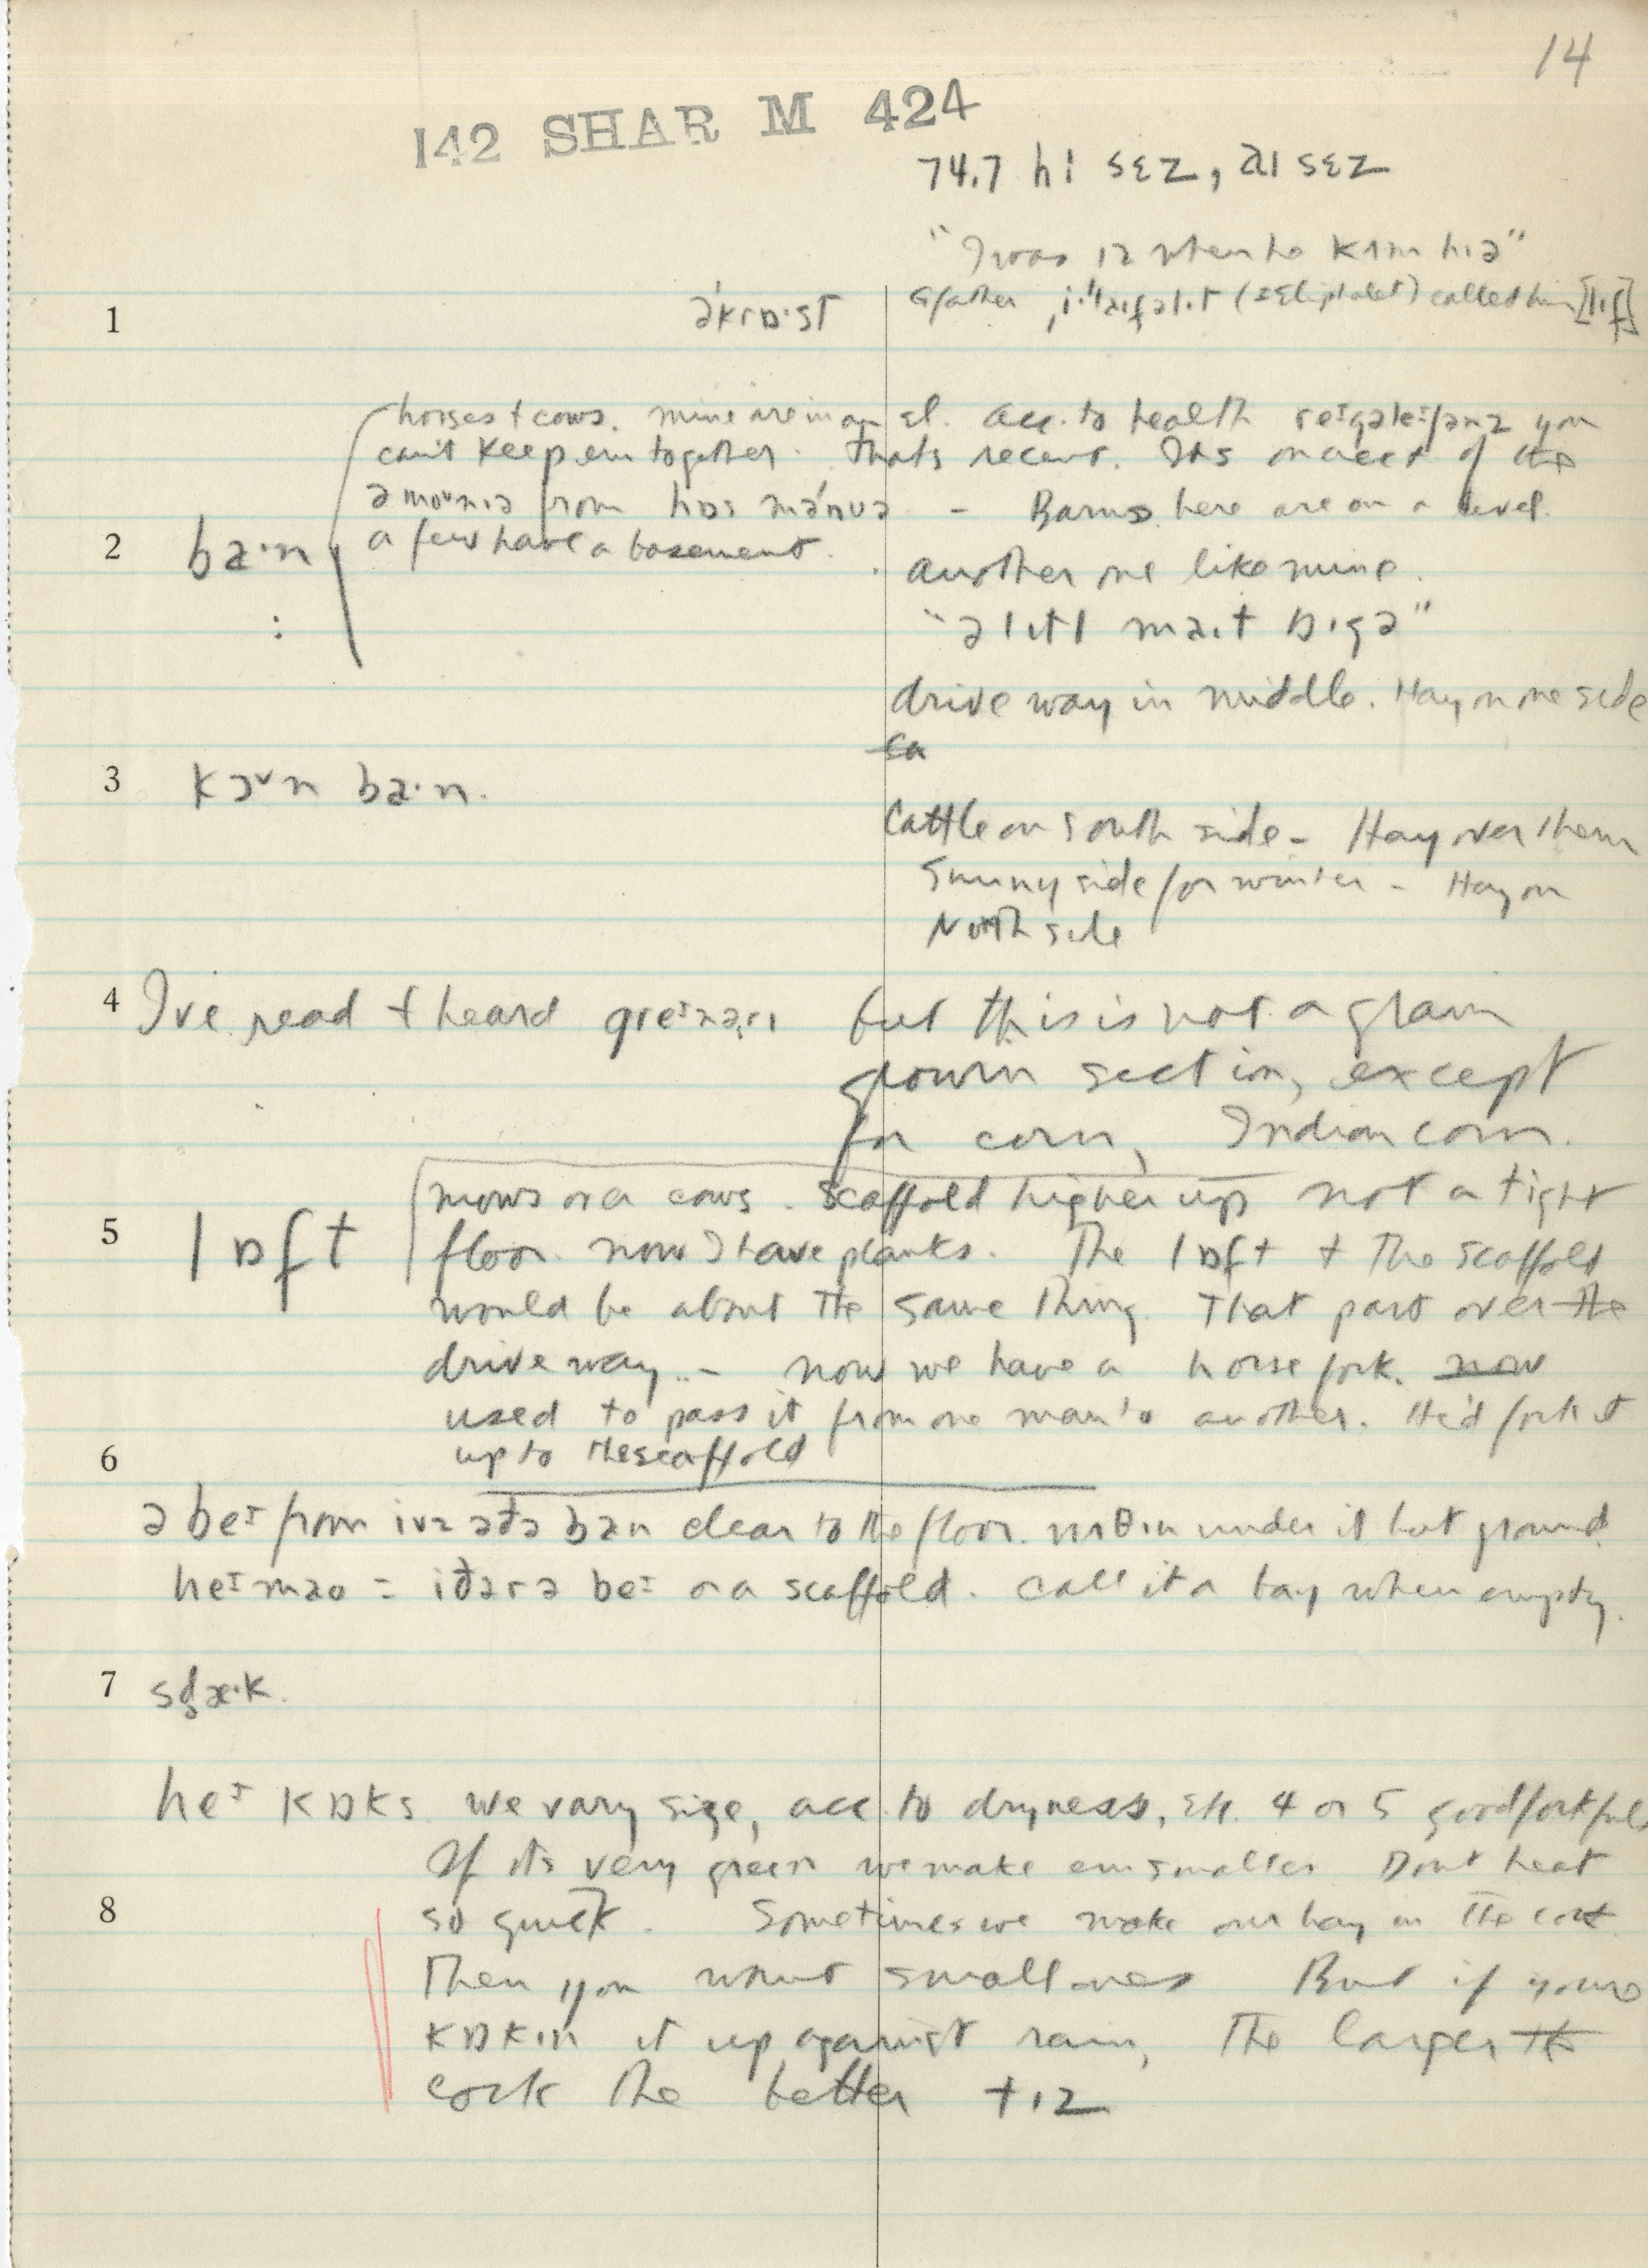 14
142 SHAR M 424
74.7 hi sɛz, aɪ sɛz
"I was 12 when he kʌm hɪə"
1 əkrɒ·st Gfather (= Eliphalet) called him [lɪf]
horses & cows. mine are in an el. acc. to health you
can't keep em together. That's recent. Its on acct of the
from hɒs mənuə - Barns here are on a level.
2 ba·n a few have a basement.
: another one like mine.
"ə lɪtl maɪt bɪgə"
drive way in middle. Hay on one side
3 kɔᵛn ba·n.
Cattle on South side - Hay over them
Sunny side for winter - Hay on
North side
4 I've read & heard but this is not a grain
growin section, except
for corn, Indian corn.
mows or a cows. scaffold higher up not a tight
5 lɒft floor. now I have planks. The lɒft & The scaffold
would be about the same thing. That part over the
drive way.. - now we have a horse fork. now
used to pass it from one man to another. He'd fork it
6 up to the scaffold
ə beɪ from ɪvz əðə ban clear to the floor. nʌθɪn under it but ground.
heɪ mao = iðərə beɪ or a scaffold. Call it a bay when empty.
7 sd̥æ·k.
heɪ kɒks we vary size, acc. to dryness, etc. 4 or 5 good forkfuls
If its very green we make em smaller Dont heat
8 so quick. Sometimes we make our hay in the cock
Then you want small ones But if youre
kɒkɪn it up against rain, The larger the
cock the better tɪz